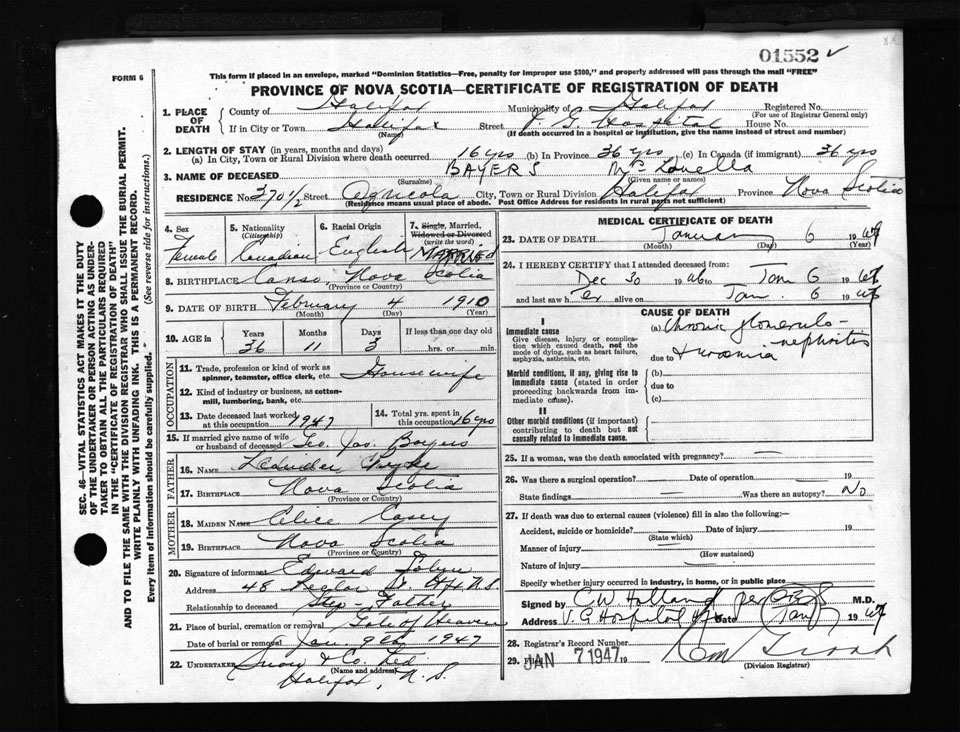 01552
FORM 6
This form if placed in an envelope, marked "Dominion Statistics—Free, penalty for improper use $300," and properly addressed will pass through the mail "FREE"
PROVINCE OF NOVA SCOTIA—CERTIFICATE OF REGISTRATION OF DEATH
SEC. 46—VITAL STATISTICS ACT MAKES IT THE DUTY
OF THE UNDERTAKER OR PERSON ACTING AS UNDER-
TAKER TO OBTAIN ALL THE PARTICULARS REQUIRED
IN THE "CERTIFICATE OF REGISTRATION OF DEATH"
AND TO FILE THE SAME WITH THE DIVISION REGISTRAR WHO SHALL ISSUE THE BURIAL PERMIT.
WRITE PLAINLY WITH UNFADING INK. THIS IS A PERMANENT RECORD.
Every item of information should be carefully supplied. (See reverse side for instructions.)
1. PLACE OF DEATH
County of Halifax Municipality of Halifax Registered No.
(For use of Registrar General only)
If in City or Town Halifax Street V. G. Hospital House No.
(Name) (If death occurred in a hospital or institution, give the name instead of street and number)
2. LENGTH OF STAY (in years, months and days)
(a) In City, Town or Rural Division where death occurred 16 yrs (b) In Province 36 yrs (c) In Canada (if immigrant) 36 yrs
3. NAME OF DECEASED BAYERS Luella
(Surname) (Given name or names)
RESIDENCE No. 370 1/2 Agricola City, Town or Rural Division Halifax Province Nova Scotia
(Residence means usual place of abode. Post Office Address for residents in rural parts not sufficient)
4. Sex Female
5. Nationality (Citizenship) Canadian
6. Racial Origin English
7. Single, Married, Widowed or Divorced (write the word) MARRIED
8. BIRTHPLACE Canso Nova Scotia
(Province or Country)
9. DATE OF BIRTH February 4 1910
(Month) (Day) (Year)
10. AGE in Years Months Days If less than one day old
36 11 3 hrs. or min.
OCCUPATION
11. Trade, profession or kind of work as spinner, teamster, office clerk, etc. Housewife
12. Kind of industry or business, as cotton-mill, lumbering, bank, etc.
13. Date deceased last worked at this occupation 1947
14. Total yrs. spent in this occupation 16 yrs
15. If married give name of wife or husband of deceased Geo. Jas. Bayers
FATHER
16. Name Pyke
17. Birthplace Nova Scotia
(Province or Country)
MOTHER
18. Maiden Name Casey
19. Birthplace Nova Scotia
(Province or Country)
20. Signature of informant Edward
Address 48 St. Hfx. N.S.
Relationship to deceased Step-Father
21. Place of burial, cremation or removal Gate of Heaven
Date of burial or removal Jan. 9th 1947
22. Undertaker Snow & Co. Ltd
(Name and address)
Halifax, N.S.
MEDICAL CERTIFICATE OF DEATH
23. DATE OF DEATH January 6 1947
(Month) (Day) (Year)
24. I HEREBY CERTIFY that I attended deceased from:
Dec 30 1946 to Jan 6 1947
and last saw her alive on Jan. 6 1947
CAUSE OF DEATH
I
Immediate cause
Give disease, injury or complication which caused death, not the mode of dying, such as heart failure, asphyxia, asthenia, etc.
(a) Chronic glomerulo-nephritis
due to + uraemia
Morbid conditions, if any, giving rise to immediate cause (stated in order proceeding backwards from immediate cause).
(b)
due to
(c)
II
Other morbid conditions (if important) contributing to death but not causally related to immediate cause.
25. If a woman, was the death associated with pregnancy? —
26. Was there a surgical operation? — Date of operation 19
State findings — Was there an autopsy? No
27. If death was due to external causes (violence) fill in also the following:
Accident, suicide or homicide? Date of injury 19
(State which)
Manner of injury
(How sustained)
Nature of injury
Specify whether injury occurred in industry, in home, or in public place
Signed by C W Holland per M.D.
Address V. G Hospital Hfx Date Jan 1947
28. Registrar's Record Number
29. Filed JAN 7 1947 19
(Division Registrar)